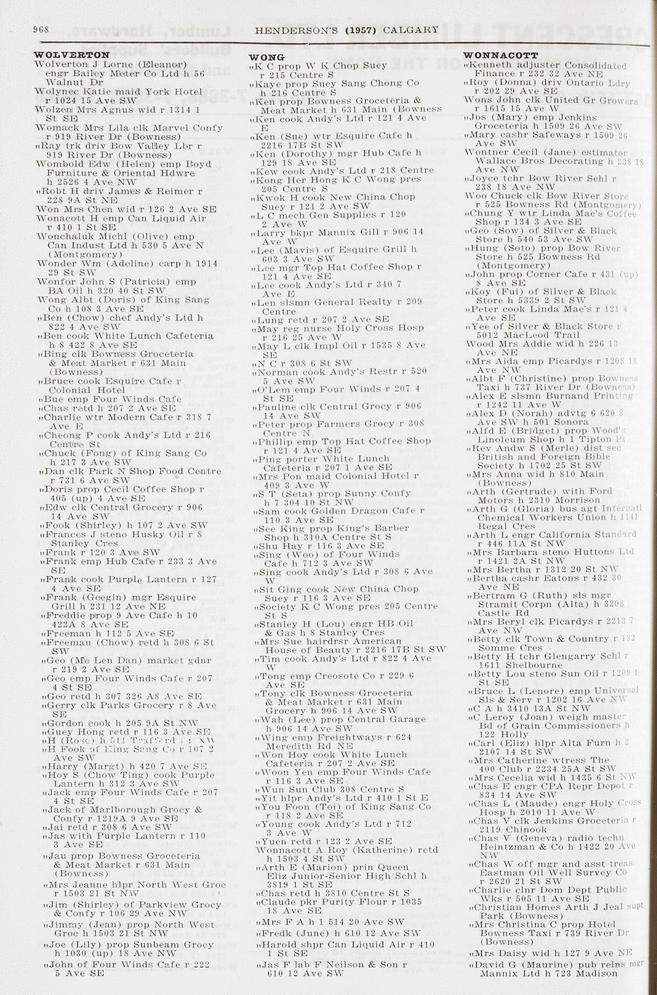 968
HENDERSON'S (1957) CALGARY
WOLVERTON
Wolverton J Lorne (Eleanor)
engr Bailey Meter Co Ltd h 56
Walnut Dr
Wolynec Katie maid York Hotel
r 1024 15 Ave SW
Wolzen Mrs Agnus wid r 1314 1
St SE
Womack Mrs Lila clk Marvel Confy
r 919 River Dr (Bowness)
„Ray trk driv Bow Valley Lbr r
919 River Dr (Bowness)
Wombold Edw (Helen) emp Boyd
Furniture & Oriental Hdwre
h 2526 4 Ave NW
„Robt H driv James & Reimer r
228 9A St NE
Won Mrs Chen wid r 126 2 Ave SE
Wonacott H emp Can Liquid Air
r 410 1 St SE
Wonchaluk Michl (Olive) emp
Can Indust Ltd h 530 5 Ave N
(Montgomery)
Wonder Wm (Adeline) carp h 1914
29 St SW
Wonfor John S (Patricia) emp
BA Oil h 320 40 St SW
Wong Albt (Doris) of King Sang
Co h 108 3 Ave SE
„Ben (Chow) chef Andy's Ltd h
822 4 Ave SW
„Ben cook White Lunch Cafeteria
h 8 422 8 Ave SE
„Bing clk Bowness Groceteria
& Meat Market r 631 Main
(Bowness)
„Bruce cook Esquire Cafe r
Colonial Hotel
„Bue emp Four Winds Cafe
„Chas retd h 207 2 Ave SE
„Charlie wtr Modern Cafe r 318 7
Ave E
„Cheong P cook Andy's Ltd r 216
Centre St
„Chuck (Fong) of King Sang Co
h 217 3 Ave SW
„Dan clk Park N Shop Food Centre
r 731 6 Ave SW
„Doris prop Cecil Coffee Shop r
405 (up) 4 Ave SE
„Edw clk Central Grocery r 906
14 Ave SW
„Fook (Shirley) h 107 2 Ave SW
„Frances J steno Husky Oil r 8
Stanley Cres
„Frank r 120 3 Ave SW
„Frank emp Hub Cafe r 233 3 Ave
SE
„Frank cook Purple Lantern r 127
4 Ave SE
„Frank (Geegin) mgr Esquire
Grill h 231 12 Ave NE
„Freddie prop 9 Ave Cafe h 10
422A 8 Ave SW
„Freeman h 112 5 Ave SE
„Freeman (Chow) retd h 308 6 St
SW
„Geo (Me Len Dan) market gdnr
r 219 2 Ave SE
„Geo emp Four Winds Cafe r 207
4 St SE
„Geo retd h 307 326 A8 Ave SE
„Gerry clk Parks Grocery r 8 Ave
SE
„Gordon cook h 205 9A St NW
„Guey Hong retd r 116 3 Ave SE
„H Fook of King Sang Co r 107 2
Ave SW
„Harry (Margt) h 420 7 Ave SE
„Hoy S (Chow Ting) cook Purple
Lantern h 312 3 Ave SW
„Jack emp Four Winds Cafe r 207
4 St SE
„Jack of Marlborough Grocy &
Confy r 1219A 9 Ave SE
„Jai retd r 308 6 Ave SW
„Jas with Purple Lantern r 110
3 Ave SE
„Jau prop Bowness Groceteria
& Meat Market r 631 Main
(Bowness)
„Mrs Jeanne hlpr North West Groc
r 1503 21 St NW
„Jim (Shirley) of Parkview Grocy
& Confy r 106 29 Ave NW
„Jimmy (Jean) prop North West
Groc h 1503 21 St NW
„Joe (Lily) prop Sunbeam Grocy
h 1030 (up) 18 Ave NW
„John of Four Winds Cafe r 222
5 Ave SE
WONG
„K C prop W K Chop Suey
r 215 Centre S
„Kaye prop Suey Sang Chong Co
h 216 Centre S
„Ken prop Bowness Groceteria &
Meat Market h 631 Main (Bowness)
„Ken cook Andy's Ltd r 121 4 Ave
E
„Ken (Sue) wtr Esquire Cafe h
2216 17B St SW
„Ken (Dorothy) mgr Hub Cafe h
129 18 Ave SE
„Kew cook Andy's Ltd r 218 Centre
„Kong Her Hong K C Wong pres
205 Centre S
„Kwok H cook New China Chop
Suey r 121 2 Ave SW
„L C mech Gen Supplies r 120
2 Ave W
„Larry bkpr Mannix Gill r 906 14
Ave W
„Lee (Mavis) of Esquire Grill h
603 3 Ave SW
„Lee mgr Top Hat Coffee Shop r
121 4 Ave SE
„Lee cook Andy's Ltd r 340 7
Ave E
„Len slsmn General Realty r 209
Centre
„Lung retd r 207 2 Ave SE
„May reg nurse Holy Cross Hosp
r 216 25 Ave W
„May L clk Impl Oil r 1535 8 Ave
SE
„N C r 308 6 St SW
„Norman cook Andy's Restr r 520
5 Ave SW
„O'Lem emp Four Winds r 207 4
St SE
„Pauline clk Central Grocy r 906
14 Ave SW
„Peter prop Farmers Grocy r 308
Centre N
„Phillip emp Top Hat Coffee Shop
r 121 4 Ave SE
„Ping porter White Lunch
Cafeteria r 207 1 Ave SE
„Mrs Pon maid Colonial Hotel r
409 3 Ave W
„S T (Seta) prop Sunny Confy
h 7 304 10 St NW
„Sam cook Golden Dragon Cafe r
110 3 Ave SE
„See King prop King's Barber
Shop h 310A Centre St S
„Shu Hay r 116 3 Ave SE
„Sing (Woo) of Four Winds
Cafe h 712 3 Ave SW
„Sing cook Andy's Ltd r 308 6 Ave
W
„Sit Ging cook New China Chop
Suey r 116 3 Ave SE
„Society K C Wong pres 205 Centre
St S
„Stanley H (Lou) engr HB Oil
& Gas h 8 Stanley Cres
„Mrs Sue hairdrsr American
House of Beauty r 2216 17B St SW
„Tim cook Andy's Ltd r 822 4 Ave
W
„Tong emp Creosote Co r 229 6
Ave SE
„Tony clk Bowness Groceteria
& Meat Market r 631 Main
Grocery h 906 14 Ave SW
„Wah (Lee) prop Central Garage
h 906 14 Ave SW
„Wing emp Freightways r 624
Meredith Rd NE
„Won Hoy cook White Lunch
Cafeteria r 207 2 Ave SE
„Woon Yen emp Four Winds Cafe
r 116 3 Ave SE
„Wun Sun Club 308 Centre S
„Yit hlpr Andy's Ltd r 410 1 St E
„You Foon (Toi) of King Sang Co
r 118 2 Ave SE
„Young cook Andy's Ltd r 712
3 Ave W
„Yuen retd r 123 2 Ave SE
Wonnacott A Roy (Katherine) retd
h 1503 4 St SW
„Arth E (Marion) prin Queen
Eliz Junior-Senior High Schl h
3819 1 St SE
„Chas retd h 3810 Centre St S
„Claude pkr Purity Flour r 1035
18 Ave SE
„Mrs F A h 1 514 20 Ave SW
„Fredk (June) h 610 12 Ave SW
„Harold shpr Can Liquid Air r 410
1 St SE
„Jas F lab F Neilson & Son r
610 12 Ave SW
WONNACOTT
„Kenneth adjuster Consolidated
Finance r 232 32 Ave NE
„Roy (Donna) driv Ontario Ldry
r 202 29 Ave SE
Wons John clk United Gr Growers
r 1615 15 Ave W
„Jos (Mary) emp Jenkins
Groceteria h 1509 26 Ave SW
„Mary cashr Safeways r 1509 26
Ave SW
Wontner Cecil (Jane) estimator
Wallace Bros Decorating h 238 18
Ave NW
„Joyce tchr Bow River Schl r
238 18 Ave NW
Woo Chuck clk Bow River Store
r 525 Bowness Rd (Montgomery)
„Chung Y wtr Linda Mae's Coffee
Shop r 134 3 Ave SE
„Geo (Sow) of Silver & Black
Store h 540 53 Ave SW
„Hung (Soto) prop Bow River
Store h 525 Bowness Rd
(Montgomery)
„John prop Corner Cafe r 431 (up)
8 Ave SE
„Koy (Fui) of Silver & Black
Store h 5339 2 St SW
„Peter cook Linda Mae's r 121 4
Ave SE
„Yee of Silver & Black Store r
5012 MacLeod Trail
Wood Mrs Addie wid h 226 13
Ave NE
„Mrs Aida emp Picardys r 1208 18
Ave NW
„Albt F (Christine) prop Bowness
Taxi h 737 River Dr (Bowness)
„Alex E slsmn Burnand Printing
r 1242 11 Ave W
„Alex D (Norah) advtg 6 620 8
Ave SW h 501 Sonora
„Alfd E (Bridget) prop Wood's
Linoleum Shop h 1 Tipton Pl
„Rev Andw S (Merle) dist sec
British and Foreign Bible
Society h 1702 25 St SW
„Mrs Anna wid h 810 Main
(Bowness)
„Arth (Gertrude) with Ford
Motors h 2310 Morrison
„Arth G (Gloria) bus agt Internatl
Chemical Workers Union h 1141
Regal Cres
„Arth L engr California Standard
r 446 11A St NW
„Mrs Barbara steno Huttons Ltd
r 1421 2A St NW
„Mrs Bertha r 1312 20 St NW
„Bertha cashr Eatons r 432 30
Ave NE
„Bertram G (Ruth) sls mgr
Stramit Corpn (Alta) h 3208
Castle Rd
„Mrs Beryl clk Picardys r 2213 7
Ave NW
„Betty clk Town & Country r 182
Somme Cres
„Betty H tchr Glengarry Schl r
1611 Shelbourne
„Betty Lou steno Sun Oil r 1209 1
St SE
„Bruce L (Lenore) emp Universal
Sls & Serv r 1202 16 Ave NW
„C A h 3410 13A St NW
„C Leroy (Joan) weigh master
Bd of Grain Commissioners h
122 Holly
„Carl (Eliz) hlpr Alta Furn h 2
2107 14 St SW
„Mrs Catherine wtress The
400 Club r 2234 25A St SW
„Mrs Cecelia wid h 1435 6 St NW
„Chas E engr CPA Repr Depot r
834 14 Ave SW
„Chas L (Maude) engr Holy Cross
Hosp h 2010 11 Ave W
„Chas V clk Jenkins Groceteria r
2119 Chinook
„Chas V (Geneva) radio techn
Heintzman & Co h 1422 20 Ave
NW
„Chas W off mgr and asst treas
Eastman Oil Well Survey Co
r 2620 21 St SW
„Charlie clnr Dom Dept Public
Wks r 505 11 Ave SE
„Christian Homes Arth J Jeal supt
Park (Bowness)
„Mrs Christina C prop Hotel
Bowness Taxi r 739 River Dr
(Bowness)
„Mrs Daisy wid h 127 9 Ave NE
„David G (Maurine) pub relns mgr
Mannix Ltd h 723 Madison